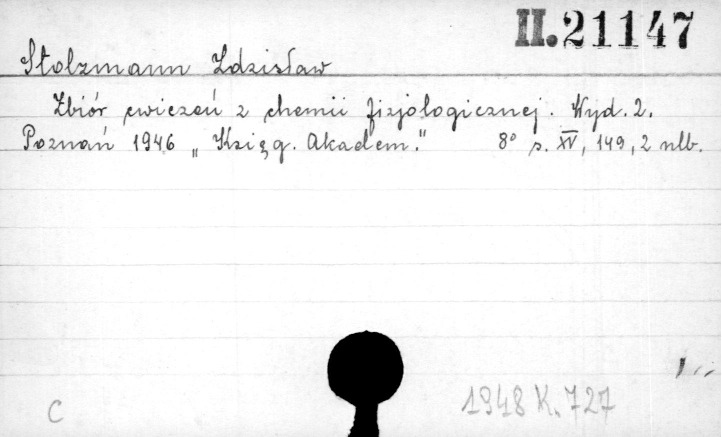 II.21147
Stolzmann Zdzisław
Zbiór ćwiczeń z chemii fizjologicznej. Wyd. 2.
Poznań 1946 „Księg. Akadem." 8° s. XV, 149, 2 nlb.
C
1948 K. 727